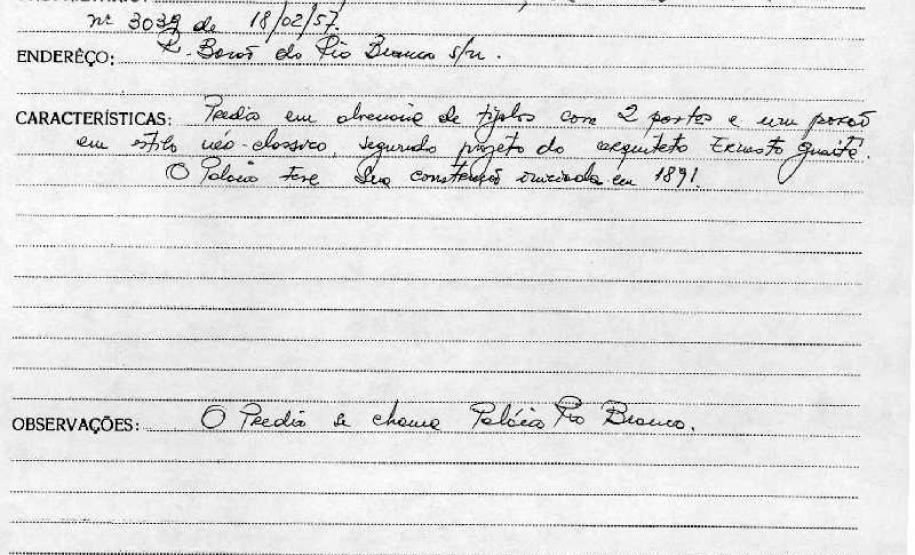 nº 3039 de 18/02/57.
ENDERÊÇO: R. Barão do Rio Branco s/n.
CARACTERÍSTICAS: Predio em alvenaria de tijolos com 2 portas e um porão
em estilo néo-classico, segundo projeto do arquiteto Ernesto Guaita.
O Palacio teve sua construção iniciada em 1891.
OBSERVAÇÕES: O Predio se chama Palácio Rio Branco.